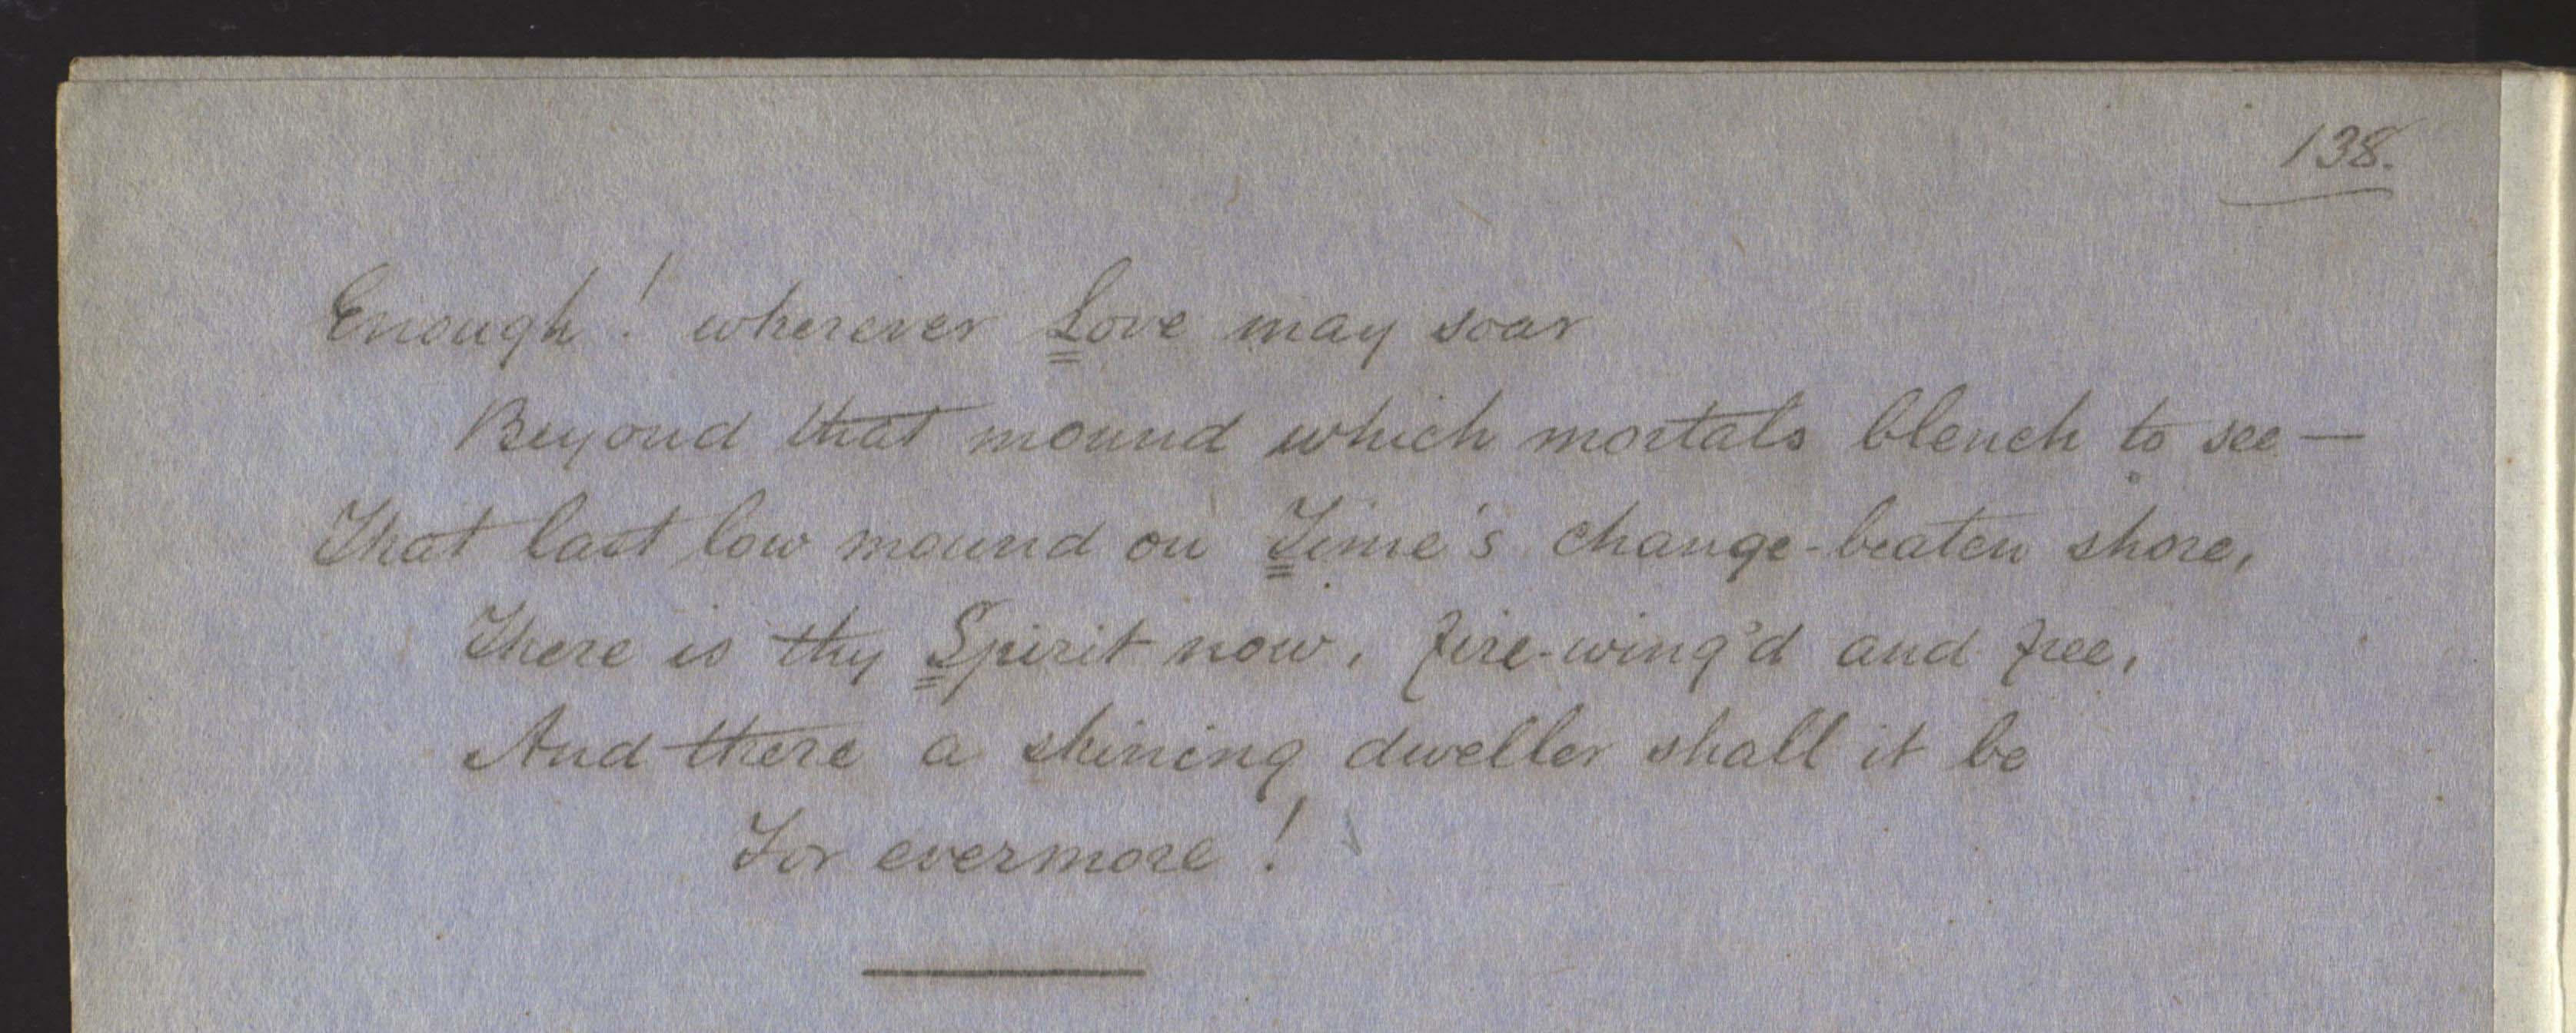 138.
Enough! wherever Love may soar
Beyond that mound which mortals blench to see —
That last low mound on Time's change-beaten shore,
There is thy Spirit now, fire-wing'd and free,
And there a shining dweller shall it be
For evermore!